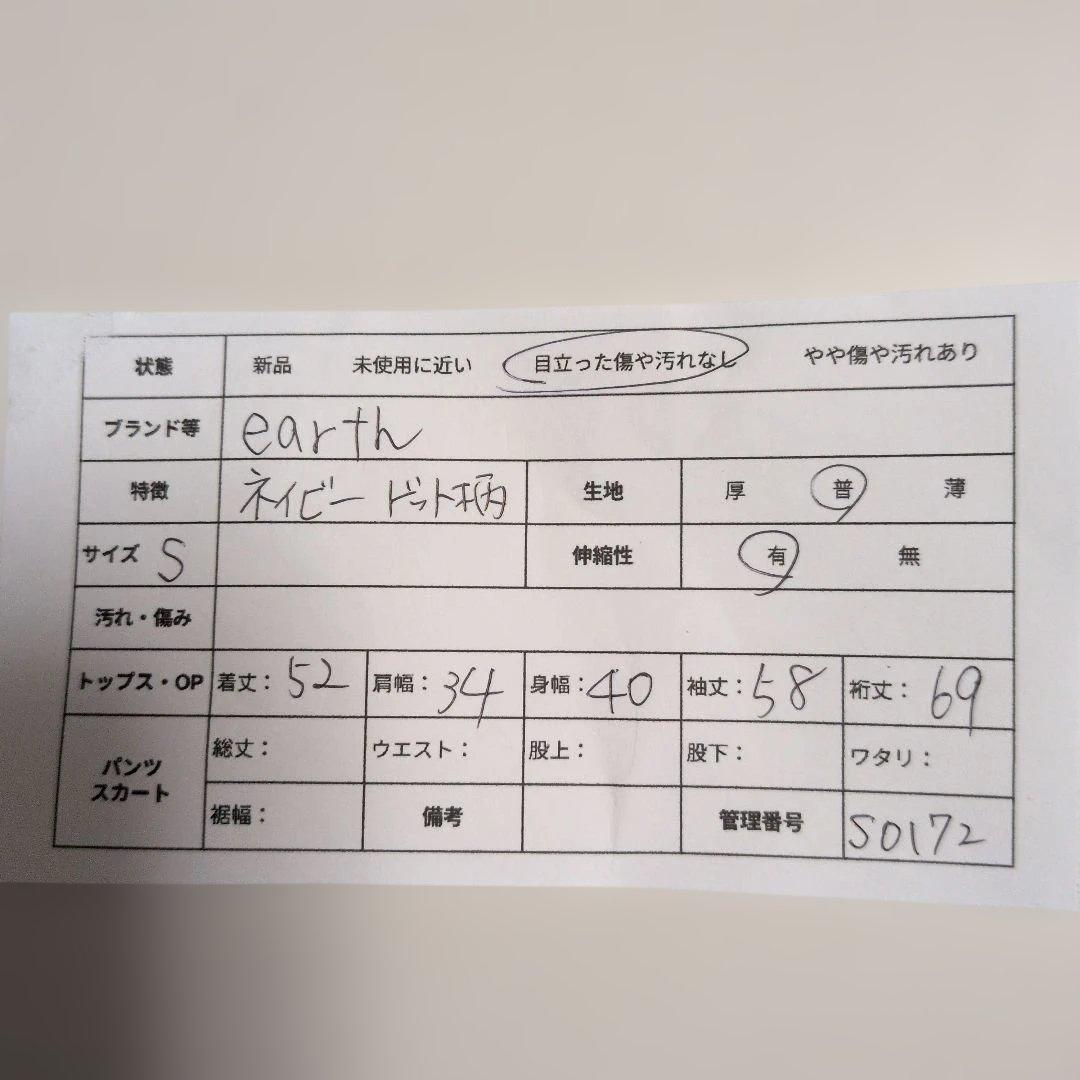 状態 新品 未使用に近い 目立った傷や汚れなし やや傷や汚れあり
ブランド等 earth
特徴 ネイビー ドット柄 生地 厚 普 薄
サイズ S 伸縮性 有 無
汚れ・傷み
トップス・OP 着丈: 52 肩幅: 34 身幅: 40 袖丈: 58 裄丈: 69
パンツ スカート 総丈: ウエスト: 股上: 股下: ワタリ:
裾幅: 備考 管理番号 S0172